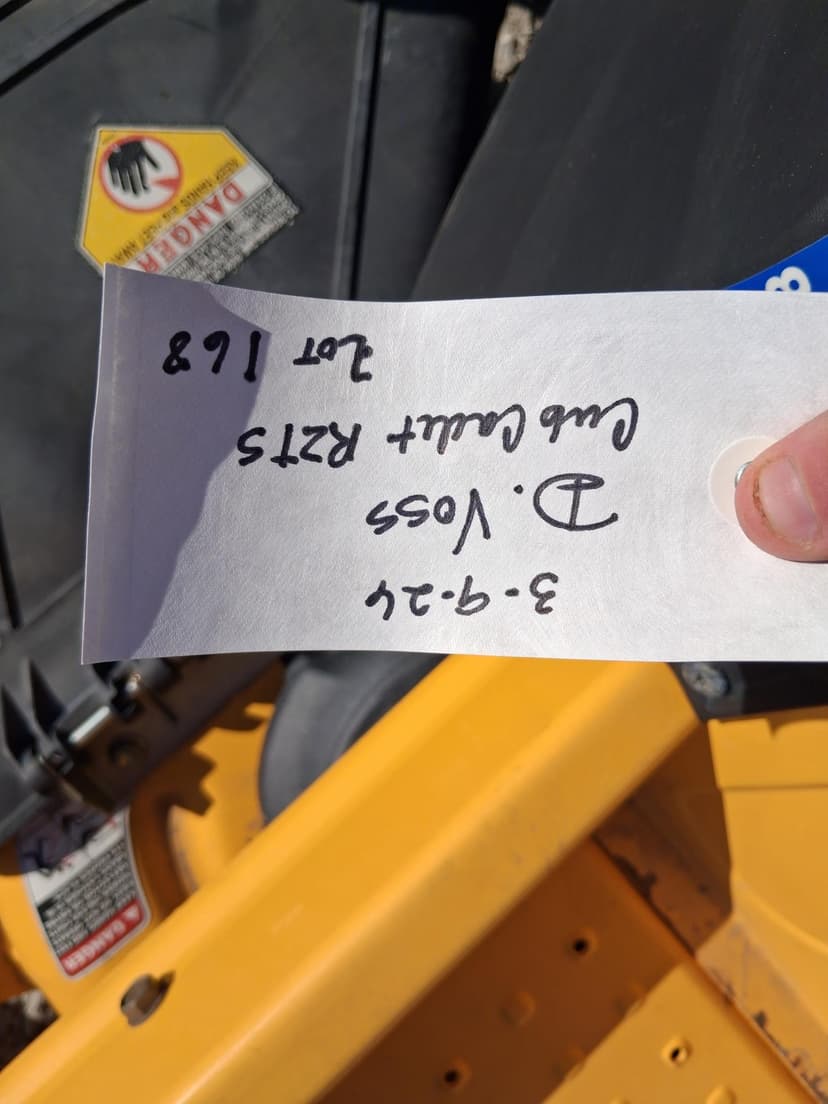 3-9-24
D. Voss
Cub Cadet RZTS
LOT 168
DANGER
KEEP HANDS and FEET AWAY
8
DANGER